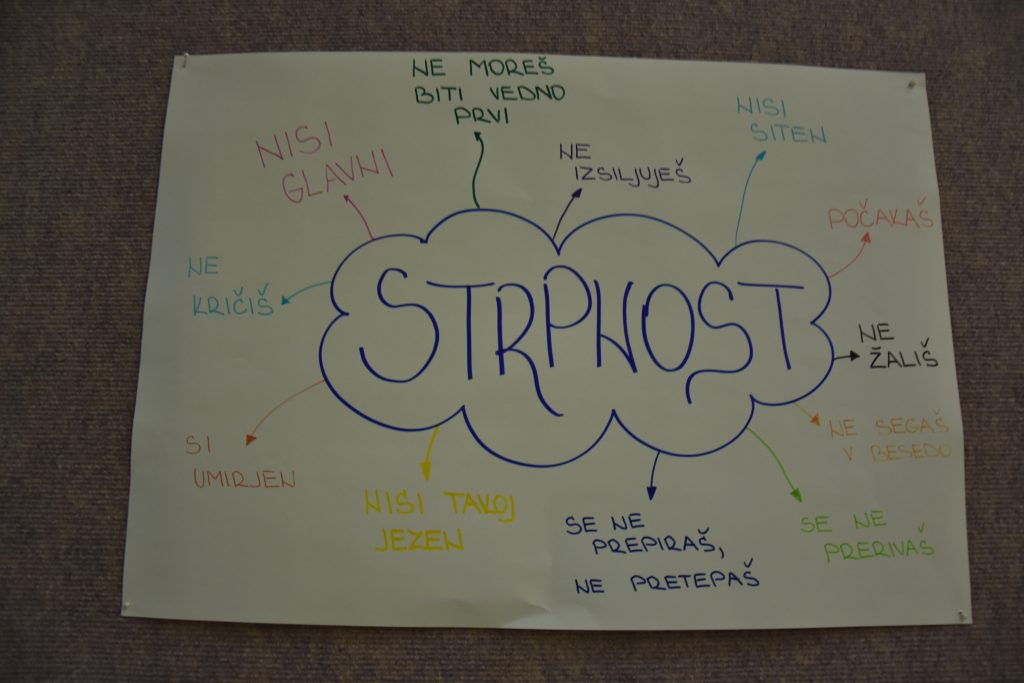 NE MOREŠ
BITI VEDNO
PRVI
NISI
SITEN
NISI
GLAVNI
NE
IZSILJUJEŠ
POČAKAŠ
NE
KRIČIŠ
STRPNOST
NE
ŽALIŠ
SI
UMIRJEN
NE SEGAŠ
V BESEDO
NISI TAKOJ
JEZEN
SE NE
PREPIRAŠ,
NE PRETEPAŠ
SE NE
PRERIVAŠ